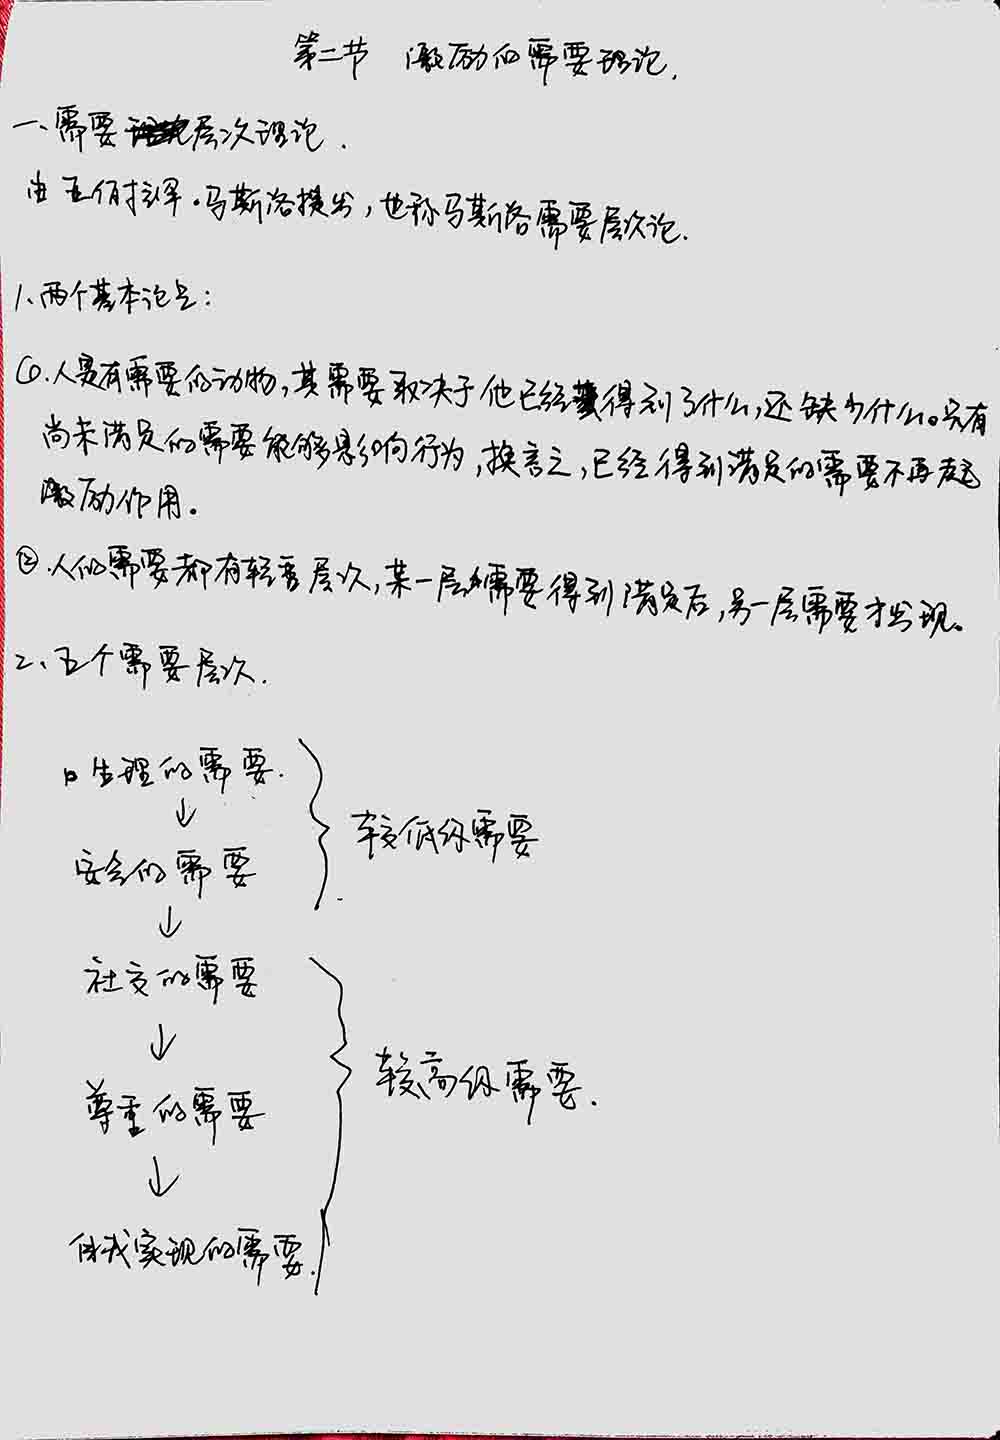 第二节 激励的需要理论.
一、需要层次理论.
由亚伯拉罕·马斯洛提出,也称马斯洛需要层次论.
1、两个基本论点:
①.人是有需要的动物,其需要取决于他已经得到了什么,还缺少什么。只有
尚未满足的需要能够影响行为,换言之,已经得到满足的需要不再起
激励作用。
②.人的需要都有轻重层次,某一层需要得到满足后,另一层需要才出现。
2、五个需要层次.
生理的需要.
↓
安全的需要
较低级需要
↓
社交的需要
↓
尊重的需要
较高级需要.
↓
自我实现的需要.